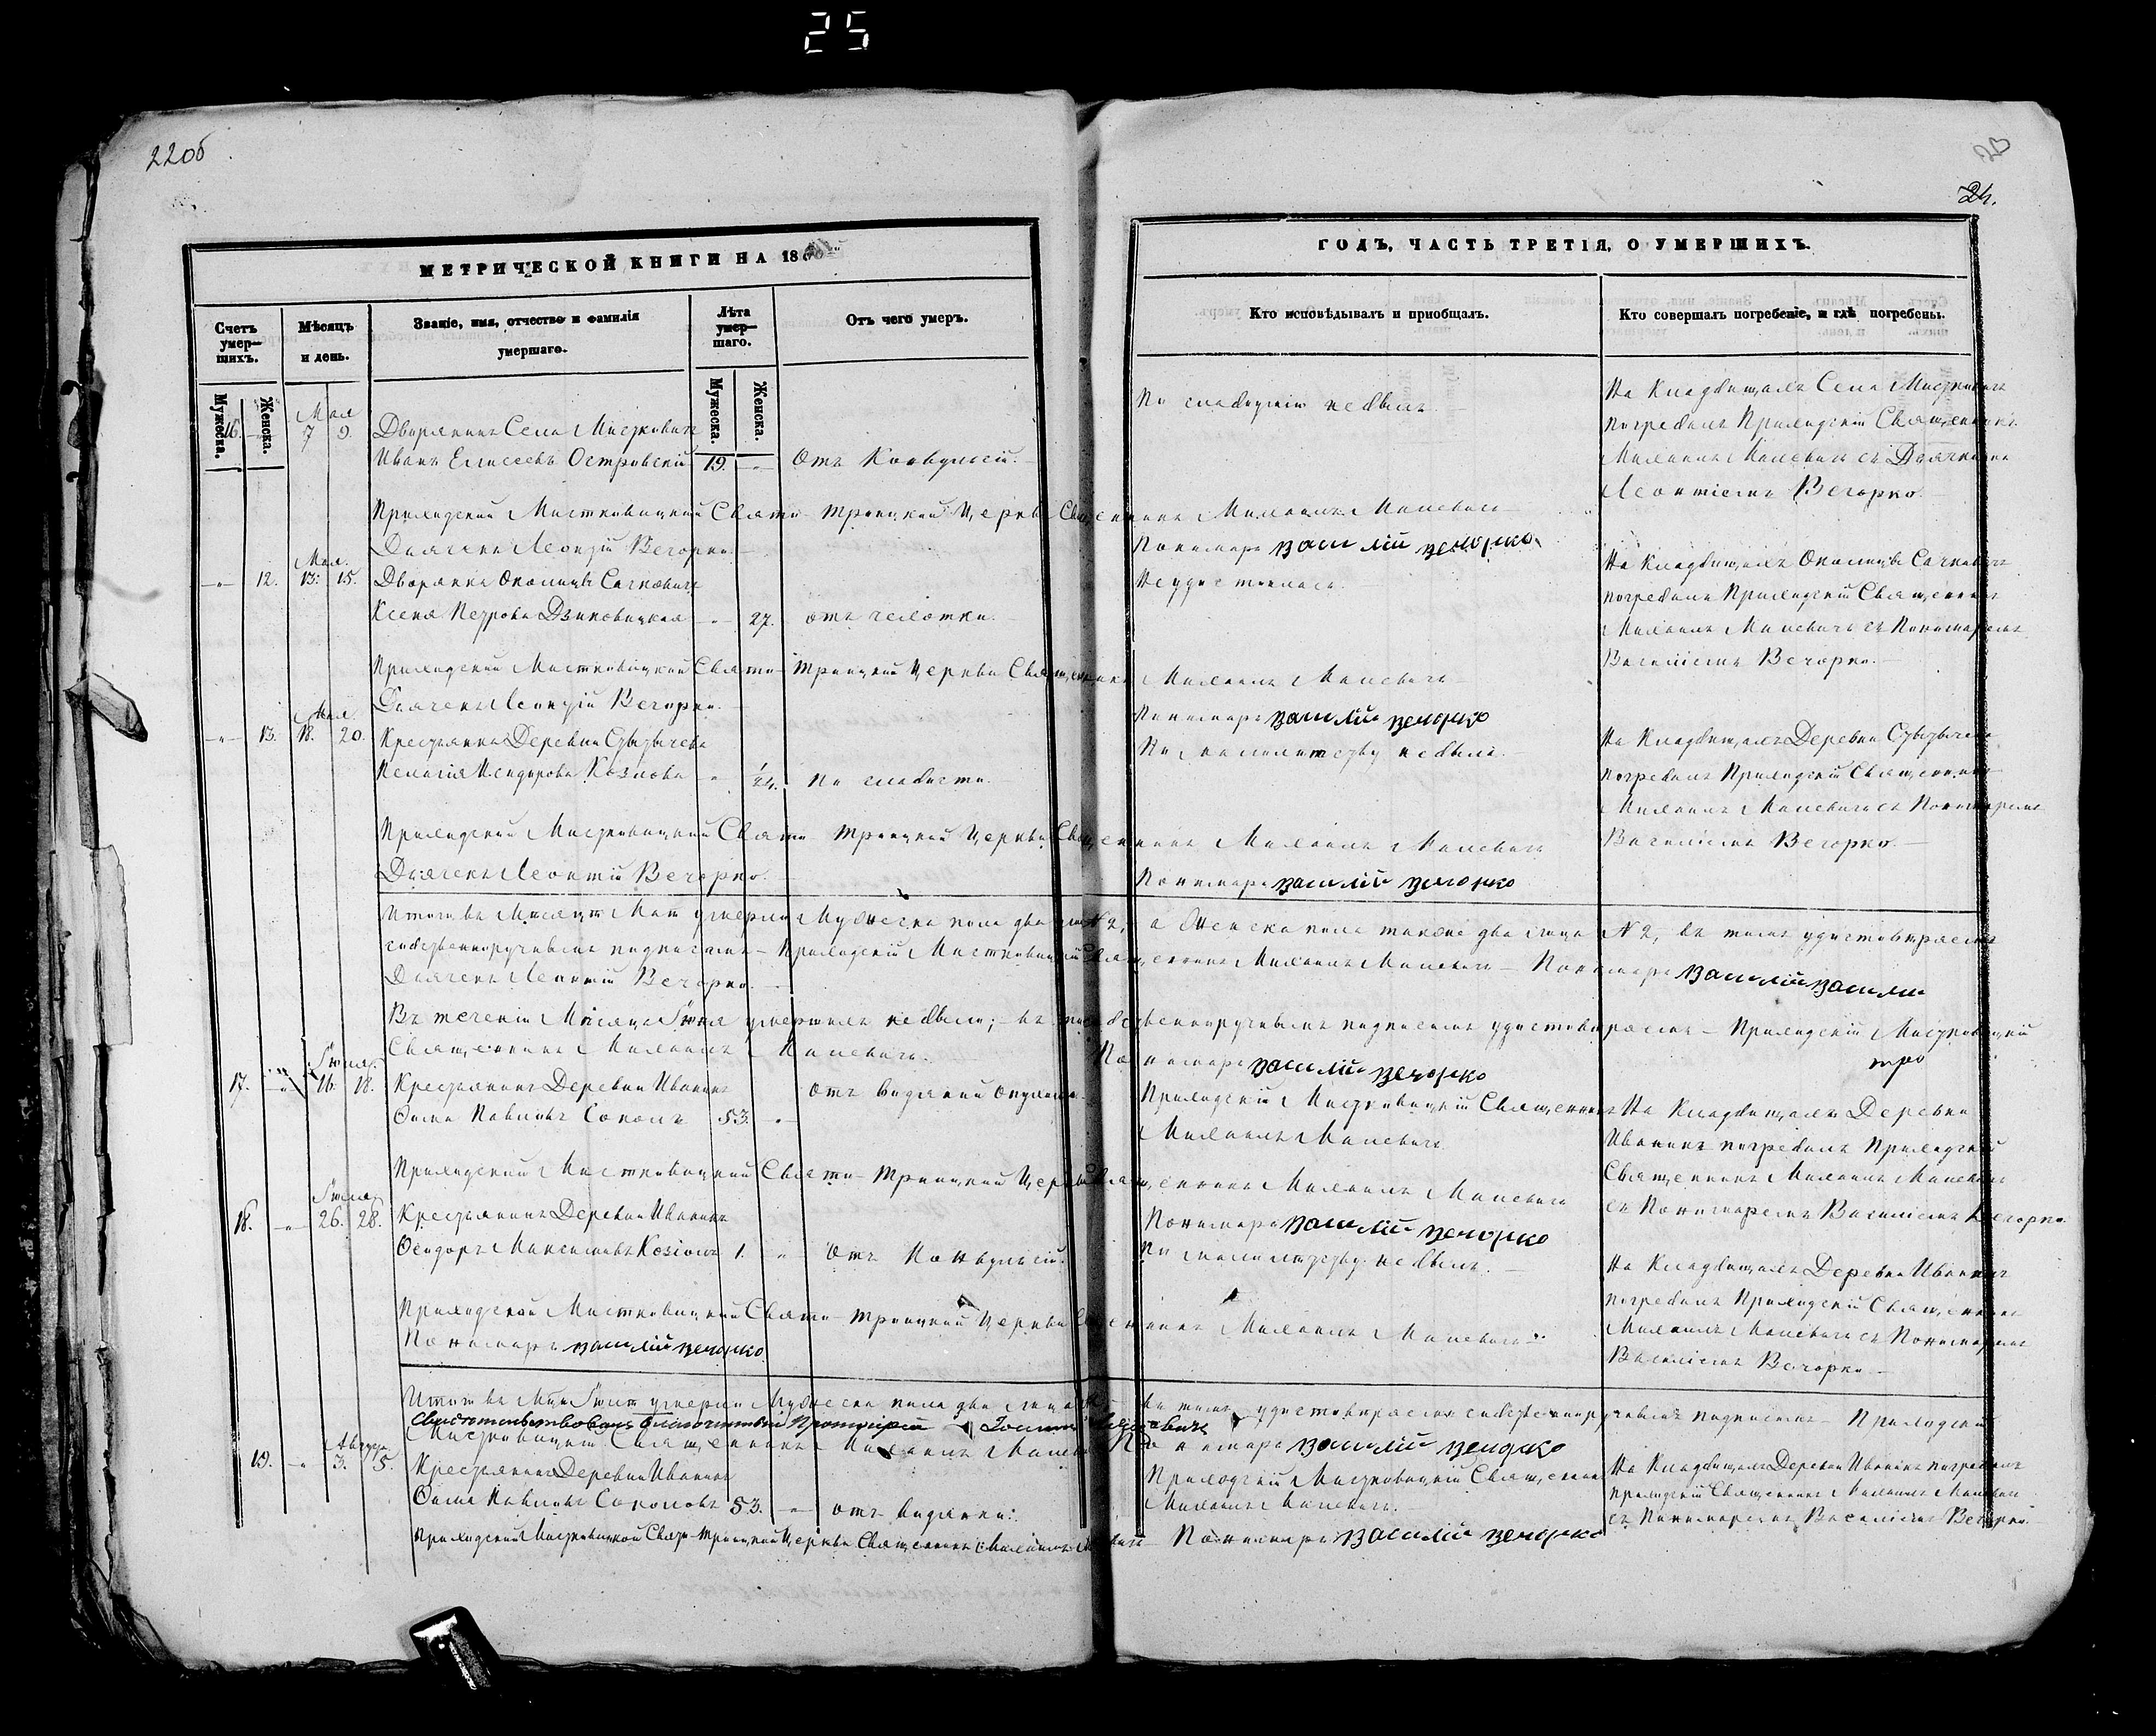 25
22об
24.
МЕТРИЧЕСКОЙ КНИГИ НА 186
ГОДЪ, ЧАСТЬ ТРЕТІЯ, О УМЕРШИХЪ.
Счетъ умер-шихъ.
Мѣсяцъ и день.
Званіе, имя, отчество и фамилія умершаго.
Лѣта умер-шаго.
Отъ чего умеръ.
Кто исповѣдывалъ и приобщалъ.
Кто совершалъ погребеніе, и гдѣ погребены.
Мужеска.
Женска.
Мужеска.
Женска.
16. Мая 7 9. Дворянинъ Села Мистковичъ
Иванъ Елисеевъ Островскій 19. Отъ Конвульсій.
не былъ.
На Кладбищахъ Села Мистковичъ
погребалъ Приходскій Священникъ
Михаилъ Малевичъ съ Дьячкомъ
Леонтіемъ Вечорко.
Приходскій Мистковицкій Свято-Троицкой Церкви Священникъ Михаилъ Малевичъ
Дьячекъ Леонтій Вечорко.
Пономарь Василій Вечорко
12. Мая 13. 15. Дворянка Околицы Сачковичъ
Ксенія Петрова Дзиковицкая 27. отъ чахотки.
Не удостоилась.
На Кладбищахъ Околицы Сачковичъ
погребалъ Приходскій Священникъ
Михаилъ Малевичъ съ Пономаремъ
Василіемъ Вечорко.
Приходскій Мистковицкій Свято-Троицкой Церкви Священникъ Михаилъ Малевичъ
Дьячекъ Леонтій Вечорко.
Пономарь Василій Вечорко
13. Мая 18. 20. Крестьянка Деревни Стытычева
Пелагія Исидорова Козлова 1/24. По слабости.
По малолетству не была.
На Кладбищахъ Деревни Стытычева
погребалъ Приходскій Священникъ
Михаилъ Малевичъ съ Пономаремъ
Василіемъ Вечорко.
Приходскій Мистковицкій Свято-Троицкой Церкви Священникъ Михаилъ Малевичъ
Дьячекъ Леонтій Вечорко.
Пономарь Василій Вечорко
Итого въ Мѣсяцѣ Маѣ умерло Мужеска пола два лица N 2, а Женска пола также два лица N 2, въ томъ удостовѣряемъ
собственноручнымъ подписомъ – Приходскій Мистковицкій Священникъ Михаилъ Малевичъ – Пономарь Василій Васили
Дьячекъ Леонтій Вечорко.
Въ теченіи Мѣсяца Іюня умершихъ не было; въ томъ собственноручнымъ подписомъ удостовѣряемъ – Приходскій Мистковицкій
Священникъ Михаилъ Малевичъ.
Пономарь Василій Вечорко
17. Іюля 16. 18. Крестьянинъ Деревни Иваникъ
Фома Павловъ Соколъ 53. отъ водяной опухоли
Приходскій Мистковицкій Священникъ
Михаилъ Малевичъ.
На Кладбищахъ Деревни
Иваникъ погребалъ Приходскій
Священникъ Михаилъ Малевичъ
съ Пономаремъ Василіемъ Вечорко.
Приходскій Мистковицкій Свято-Троицкой Церкви Священникъ Михаилъ Малевичъ
Пономарь Василій Вечорко
18. Іюля 26. 28. Крестьянинъ Деревни Иваникъ
Феодоръ Максимовъ Козловъ 1. отъ Конвульсій.
По малолетству не былъ.
На Кладбищахъ Деревни Иваникъ
погребалъ Приходскій Священникъ
Михаилъ Малевичъ съ Пономаремъ
Василіемъ Вечорко.
Приходскій Мистковицкій Свято-Троицкой Церкви Священникъ Михаилъ Малевичъ
Пономарь Василій Вечорко
Итого въ Іюлѣ умерло Мужеска пола два лица въ томъ удостовѣряемъ собственноручнымъ подписомъ Приходскій
Свидѣтельствовалъ Благочинный Протоіерей
Мистковицкій Священникъ Михаилъ Малевичъ Пономарь Василій Вечорко
19. Августа 3. 5. Крестьянинъ Деревни Иваникъ
Фома Павловъ Соколовъ 53. отъ водянки.
Приходскій Мистковицкій Священникъ
Михаилъ Малевичъ.
На Кладбищахъ Деревни Иваникъ погребалъ
Приходскій Священникъ Михаилъ Малевичъ
съ Пономаремъ Василіемъ Вечорко.
Приходскій Мистковицкой Свято-Троицкой Церкви Священникъ Михаилъ Малевичъ – Пономарь Василій Вечорко